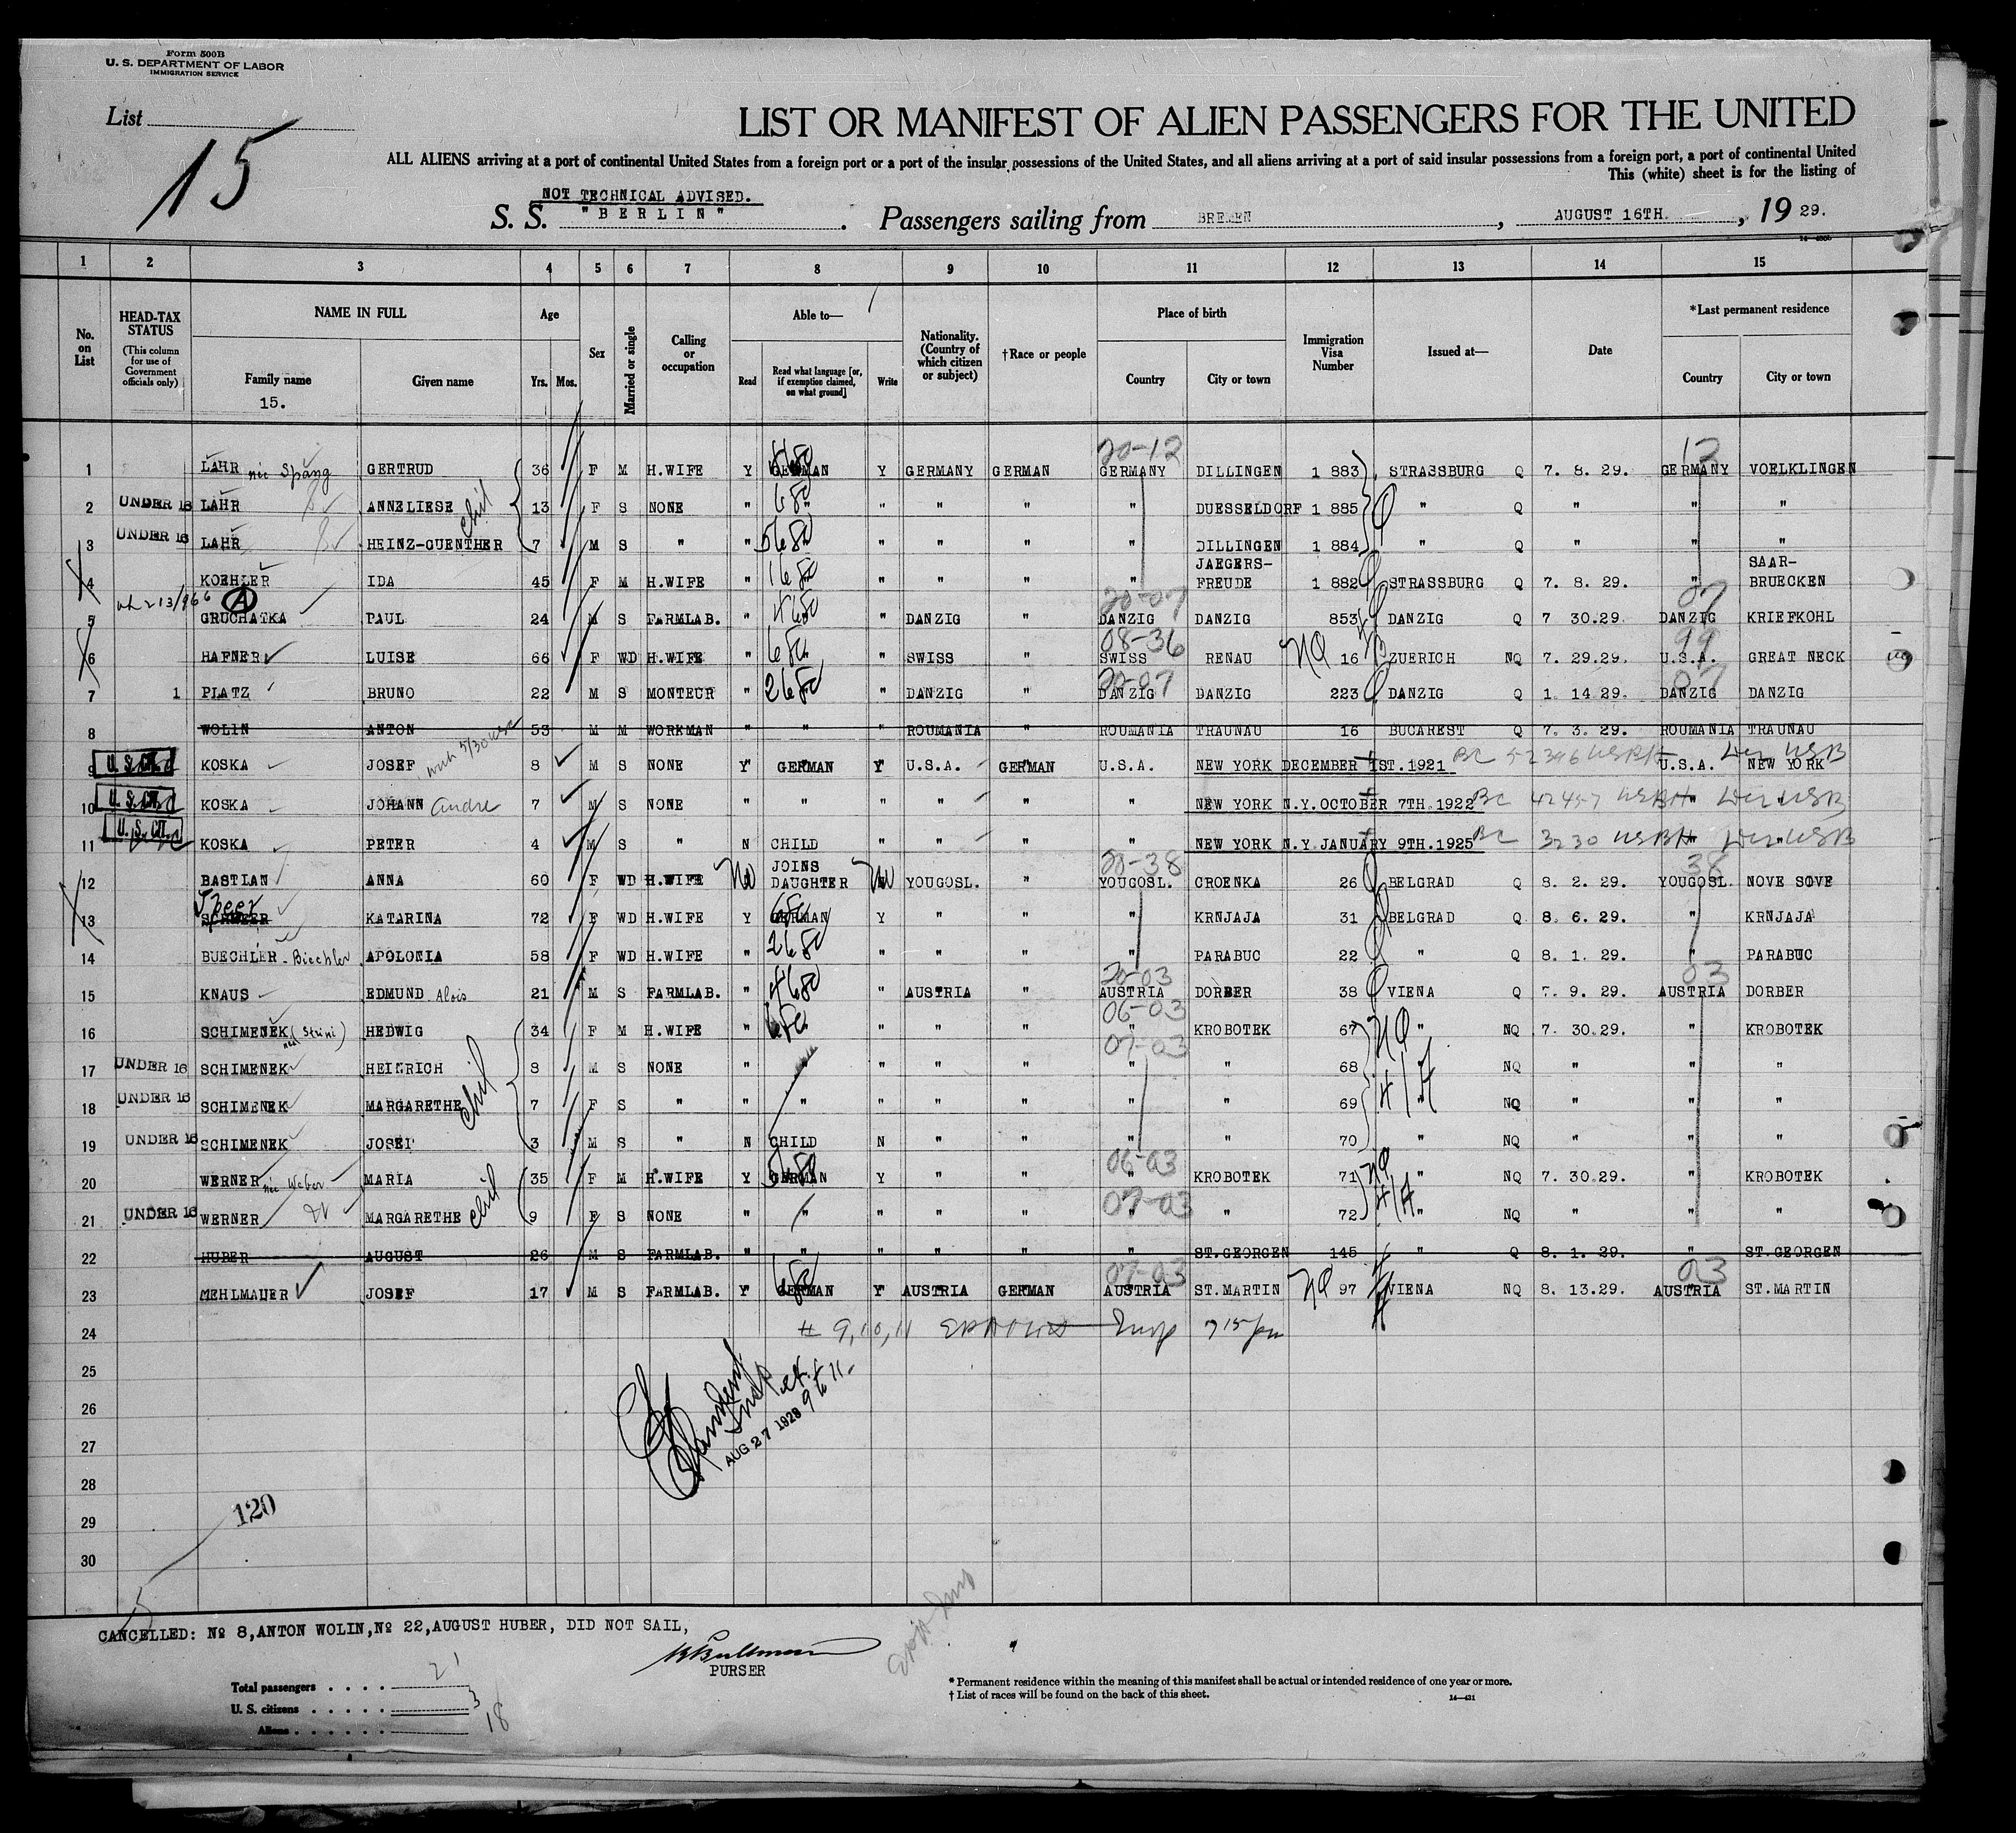 Form 500B
U. S. DEPARTMENT OF LABOR
IMMIGRATION SERVICE
List
15
LIST OR MANIFEST OF ALIEN PASSENGERS FOR THE UNITED
ALL ALIENS arriving at a port of continental United States from a foreign port or a port of the insular possessions of the United States, and all aliens arriving at a port of said insular possessions from a foreign port, a port of continental United
This (white) sheet is for the listing of
NOT TECHNICAL ADVISED.
S. S. "BERLIN". Passengers sailing from BREMEN, AUGUST 16TH., 19 29.
1 2 3 4 5 6 7 8 9 10 11 12 13 14 15
No. on List
HEAD-TAX STATUS
(This column for use of Government officials only)
NAME IN FULL
Family name
15.
Given name
Age
Yrs. Mos.
Sex
Married or single
Calling or occupation
Able to—
Read
Read what language [or, if exemption claimed, on what ground]
Write
Nationality. (Country of which citizen or subject)
†Race or people
Place of birth
Country
City or town
Immigration Visa Number
Issued at—
Date
*Last permanent residence
Country
City or town
20-12 12
1 LAHR nee Spang GERTRUD 36 F M H.WIFE Y GERMAN Y GERMANY GERMAN GERMANY DILLINGEN 1 883 STRASSBURG Q 7. 8. 29. GERMANY VOELKLINGEN
2 UNDER 16 LAHR ANNELIESE 13 F S NONE " " " " " " DUESSELDORF 1 885 " Q " " "
3 UNDER 16 LAHR HEINZ-GUENTHER 7 M S " " " " " " DILLINGEN 1 884 " Q " " "
4 KOEHLER IDA 45 F M H.WIFE " " " " " JAEGERS-FREUDE 1 882 STRASSBURG Q 7. 8. 29. " SAAR-BRUECKEN
A 20-07 07
5 GRUCHATKA PAUL 24 M S FARMLAB. " " DANZIG " DANZIG DANZIG 853 DANZIG Q 7 30.29. DANZIG KRIEFKOHL
08-36 99
6 HAFNER LUISE 66 F WD H.WIFE " " SWISS " SWISS RENAU NQ 16 ZUERICH NQ 7. 29.29. U.S.A. GREAT NECK
20-07 07
7 1 PLATZ BRUNO 22 M S MONTEUR " " DANZIG " DANZIG DANZIG 223 DANZIG Q 1. 14 29. DANZIG DANZIG
8 WOLIN ANTON 53 M M WORKMAN " " " ROUMANIA " ROUMANIA TRAUNAU 16 BUCAREST Q 7. 3. 29. ROUMANIA TRAUNAU
9 U. S. CIT. KOSKA JOSEF 8 M S NONE Y GERMAN Y U.S.A. GERMAN U.S.A. NEW YORK DECEMBER 1ST.1921 BC 52346 U.S.A. NEW YORK
10 U. S. CIT. KOSKA JOHANN Andre 7 M S NONE " " " " " " NEW YORK N.Y.OCTOBER 7TH.1922 BC 42457 " "
11 U. S. CIT. KOSKA PETER 4 M S " N CHILD " " " " NEW YORK N.Y.JANUARY 9TH.1925 BC 3230 " "
20-38 38
12 BASTIAN ANNA 60 F WD H.WIFE No JOINS DAUGHTER No YOUGOSL. " YOUGOSL. CROENKA 26 BELGRAD Q 8. 2. 29. YOUGOSL. NOVE SOVE
Speer
13 KATARINA 72 F WD H.WIFE Y GERMAN Y " " " KRNJAJA 31 BELGRAD Q 8. 6. 29. " KRNJAJA
14 BUECHLER - Biechler APOLONIA 58 F WD H.WIFE " " " " " PARABUC 22 " Q 8. 1. 29. " PARABUC
20-03 03
15 KNAUS EDMUND Alois 21 M S FARMLAB. " " AUSTRIA " AUSTRIA DORBER 38 VIENA Q 7. 9. 29. AUSTRIA DORBER
06-03
16 SCHIMENEK HEDWIG 34 F M H.WIFE " " " " " KROBOTEK 67 NQ " NQ 7. 30.29. " KROBOTEK
07-03
17 UNDER 16 SCHIMENEK HEINRICH 8 M S NONE " " " " " " 68 " NQ " " "
18 UNDER 16 SCHIMENEK MARGARETHE 7 F S " " " " " " " " 69 " NQ " " "
19 UNDER 16 SCHIMENEK JOSEF 3 M S " N CHILD N " " " " 70 " NQ " " "
06-03
20 WERNER nee Weber MARIA 35 F M H.WIFE Y GERMAN Y " " " KROBOTEK 71 NQ " NQ 7. 30.29. " KROBOTEK
07-03
21 UNDER 16 WERNER MARGARETHE 9 F S NONE " " " " " " " 72 " NQ " " "
22 HUBER AUGUST 26 M S FARMLAB. " " " " " " ST.GEORGEN 145 " Q 8. 1. 29. " ST.GEORGEN
07-03 03
23 MEHLMAUER JOSEF 17 M S FARMLAB. Y GERMAN Y AUSTRIA GERMAN AUSTRIA ST.MARTIN NQ 97 VIENA NQ 8. 13.29. AUSTRIA ST.MARTIN
24 # 9,10,11
25
26
AUG 27 1929 9 to 11
27
28
29
30
120
CANCELLED: No 8,ANTON WOLIN,No 22,AUGUST HUBER, DID NOT SAIL,
PURSER
Total passengers 21
U. S. citizens 3
Aliens 18
* Permanent residence within the meaning of this manifest shall be actual or intended residence of one year or more.
† List of races will be found on the back of this sheet.
14—431